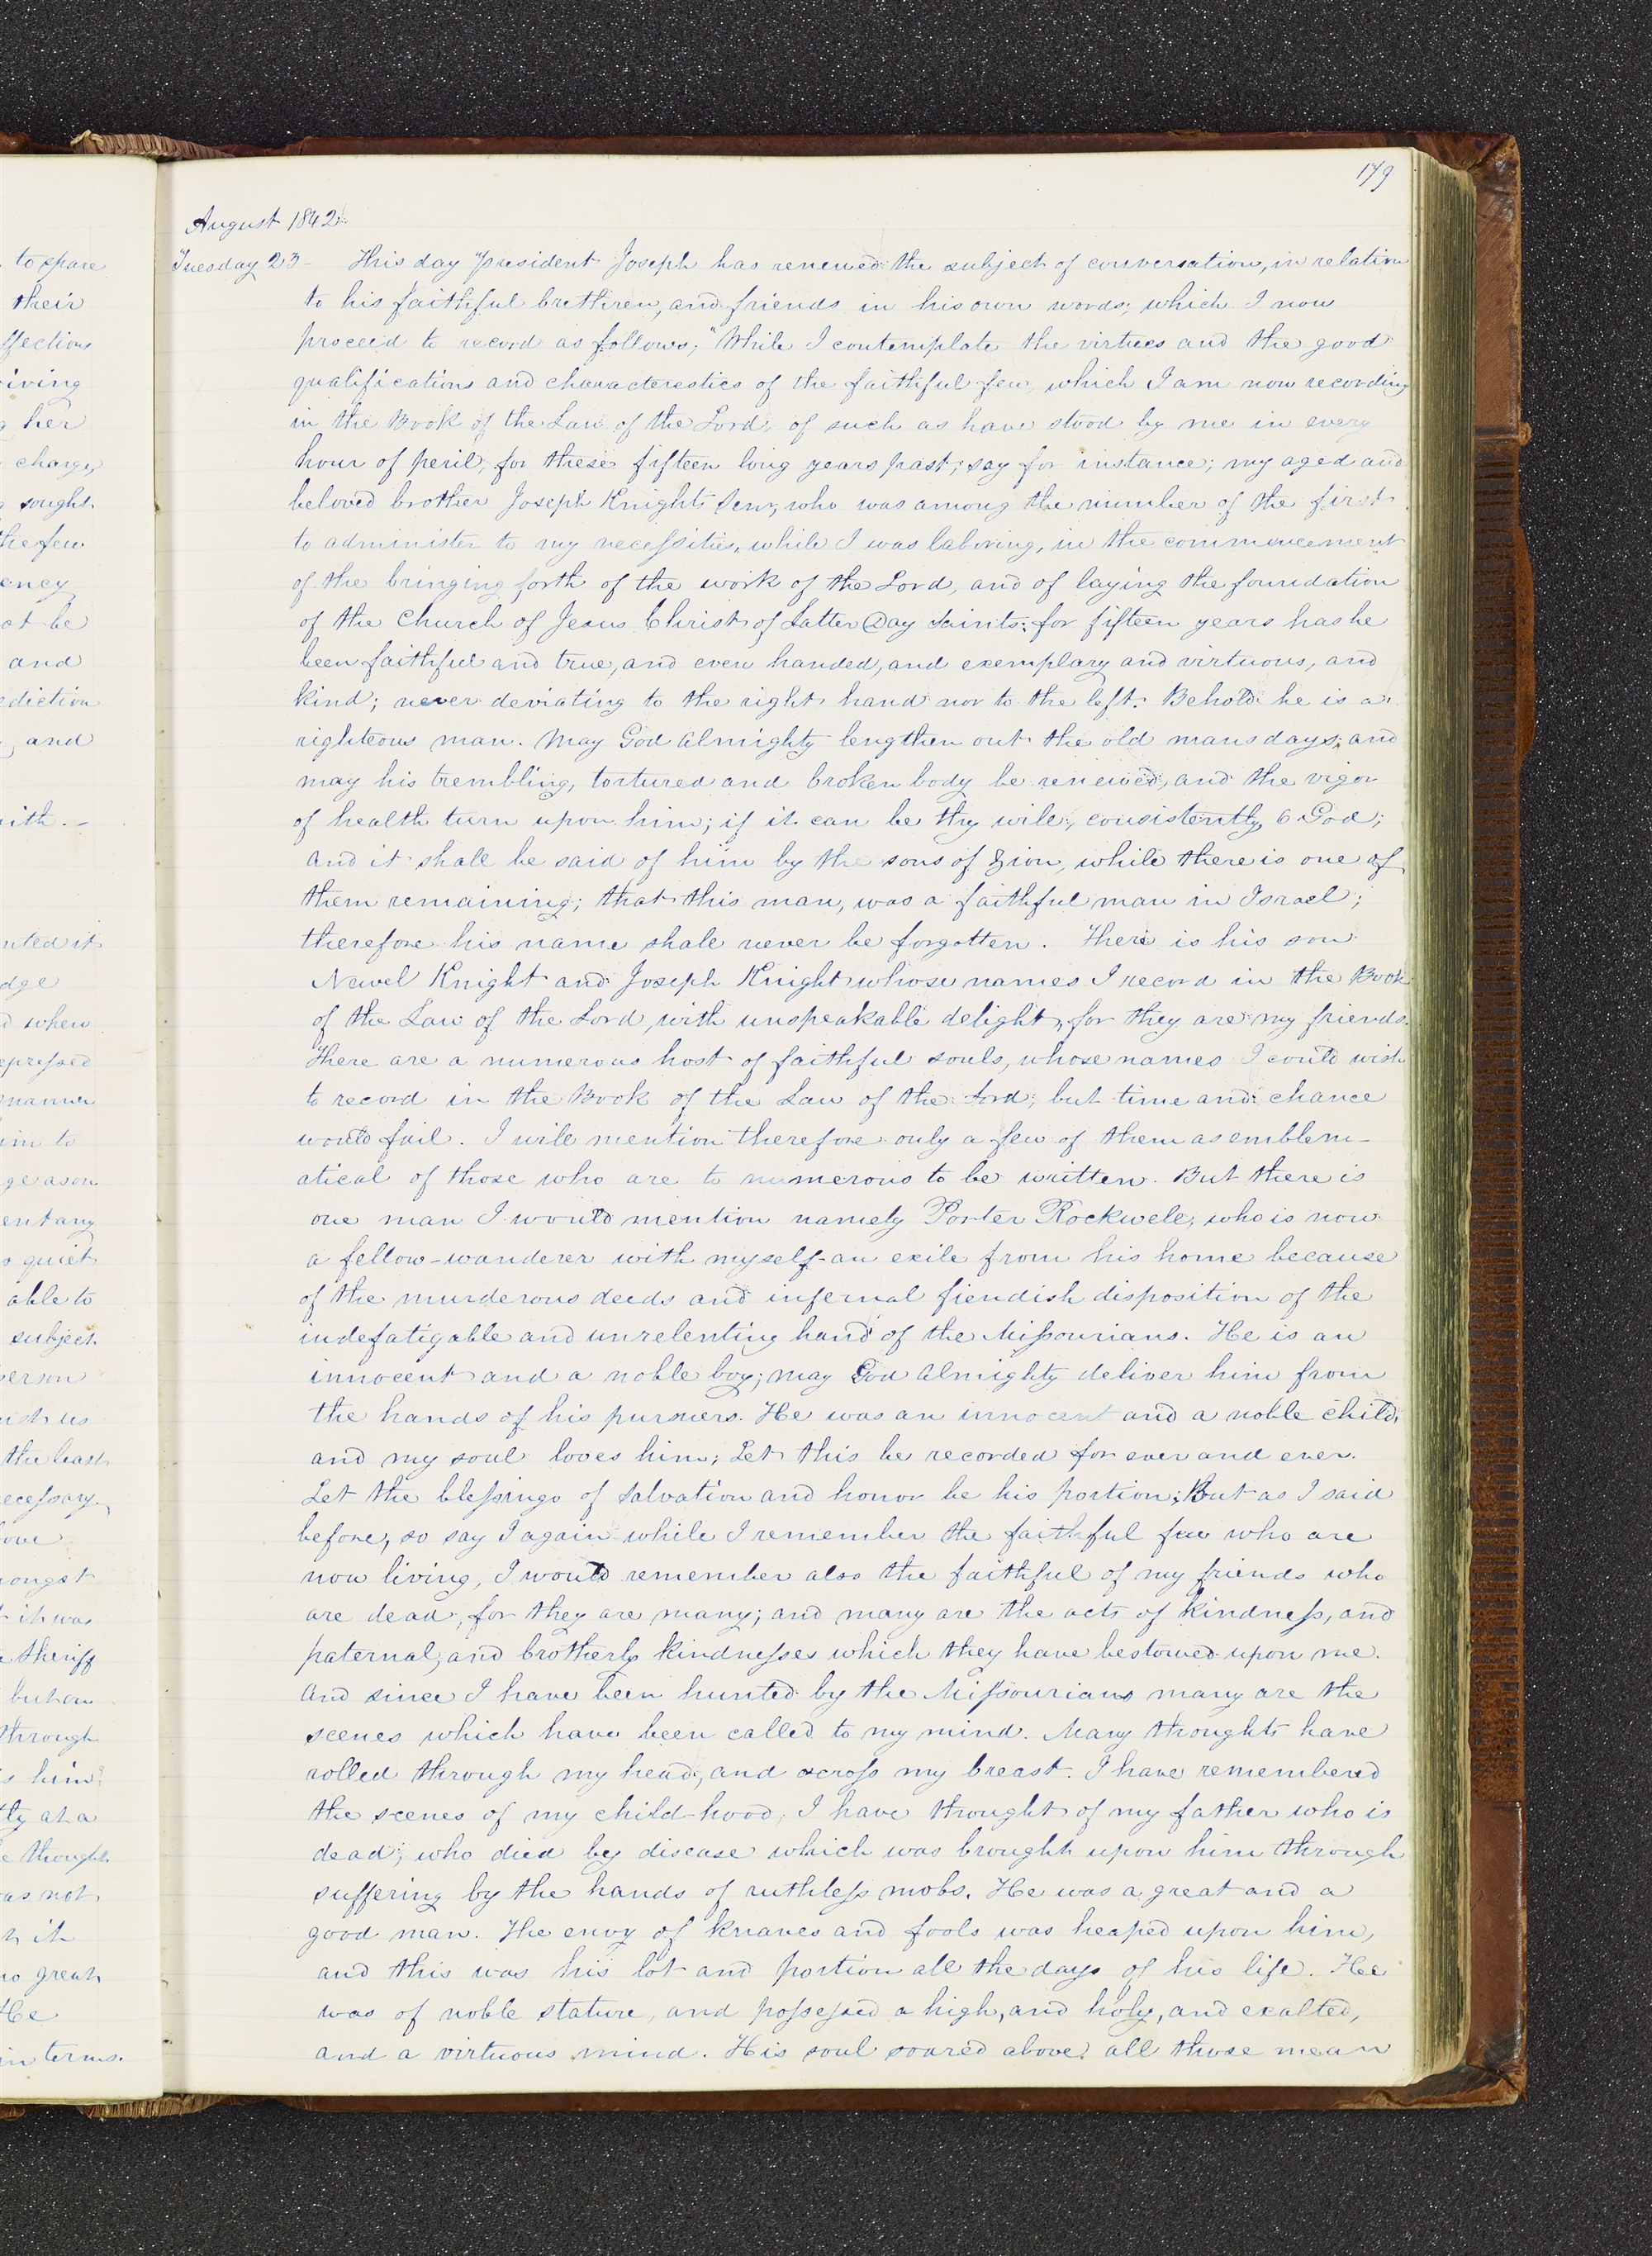 179
August 1842.
Tuesday 23– This day President Joseph has renewed the subject of conversation, in relation
to his faithful brethren, and friends in his own words; which I now
proceed to record as follows; "While I contemplate the virtues and the good
qualifications and characterestics of the faithful few, which I am now recording
in the Book of the Law of the Lord, of such as have stood by me in every
hour of peril, for these fifteen long years past; say for instance; my aged and
beloved brother Joseph Knight Senr, who was among the number of the first
to administer to my necessities, while I was laboring, in the commencement
of the bringing forth of the work of the Lord, and of laying the foundation
of the Church of Jesus Christ of Latter Day Saints: for fifteen years has he
been faithful and true, and even handed, and exemplary and virtuous, and
kind; never deviating to the right hand nor to the left. Behold he is a
righteous man. May God Almighty lengthen out the old mans days; and
may his trembling, tortured and broken body be renewed, and the vigor
of health turn upon him; if it can be thy will, consistently, O God;
and it shall be said of him by the sons of Zion, while there is one of
them remaining; that this man, was a faithful man in Israel;
therefore his name shall never be forgotten. There is his son
Newel Knight and Joseph Knight whose names I record in the Book
of the Law of the Lord, with unspeakable delight, for they are my friends.
There are a numerous host of faithful souls, whose names I could wish
to record in the Book of the Law of the Lord; but time and chance
would fail. I will mention therefore only a few of them as emblem-
atical of those who are to numerous to be written. But there is
one man I would mention namely Porter Rockwell, who is now
a fellow-wanderer with myself–an exile from his home because
of the murderous deeds and infernal fiendish disposition of the
indefatigable and unrelenting hand of the Missourians. He is an
innocent and a noble boy; may God Almighty deliver him from
the hands of his pursuers. He was an innocent and a noble child,
and my soul loves him; Let this be recorded for ever and ever.
Let the blessings of Salvation and honor be his portion; But as I said
before, so say I again while I remember the faithful few who are
now living, I would remember also the faithful of my friends who
are dead, for they are many; and many are the acts of kindness, and
paternal, and brotherly kindnesses which they have bestowed upon me.
And since I have been hunted by the Missourians many are the
scenes which have been called to my mind. Many thoughts have
rolled through my head, and across my breast. I have remembered
the scenes of my child-hood, I have thought of my father who is
dead, who died by disease which was brought upon him through
suffering by the hands of ruthless mobs. He was a great and a
good man. The envy of knaves and fools was heaped upon him,
and this was his lot and portion all the days of his life. He
was of noble stature, and possessed a high, and holy, and exalted,
and a virtuous mind. His soul soared above all those mean